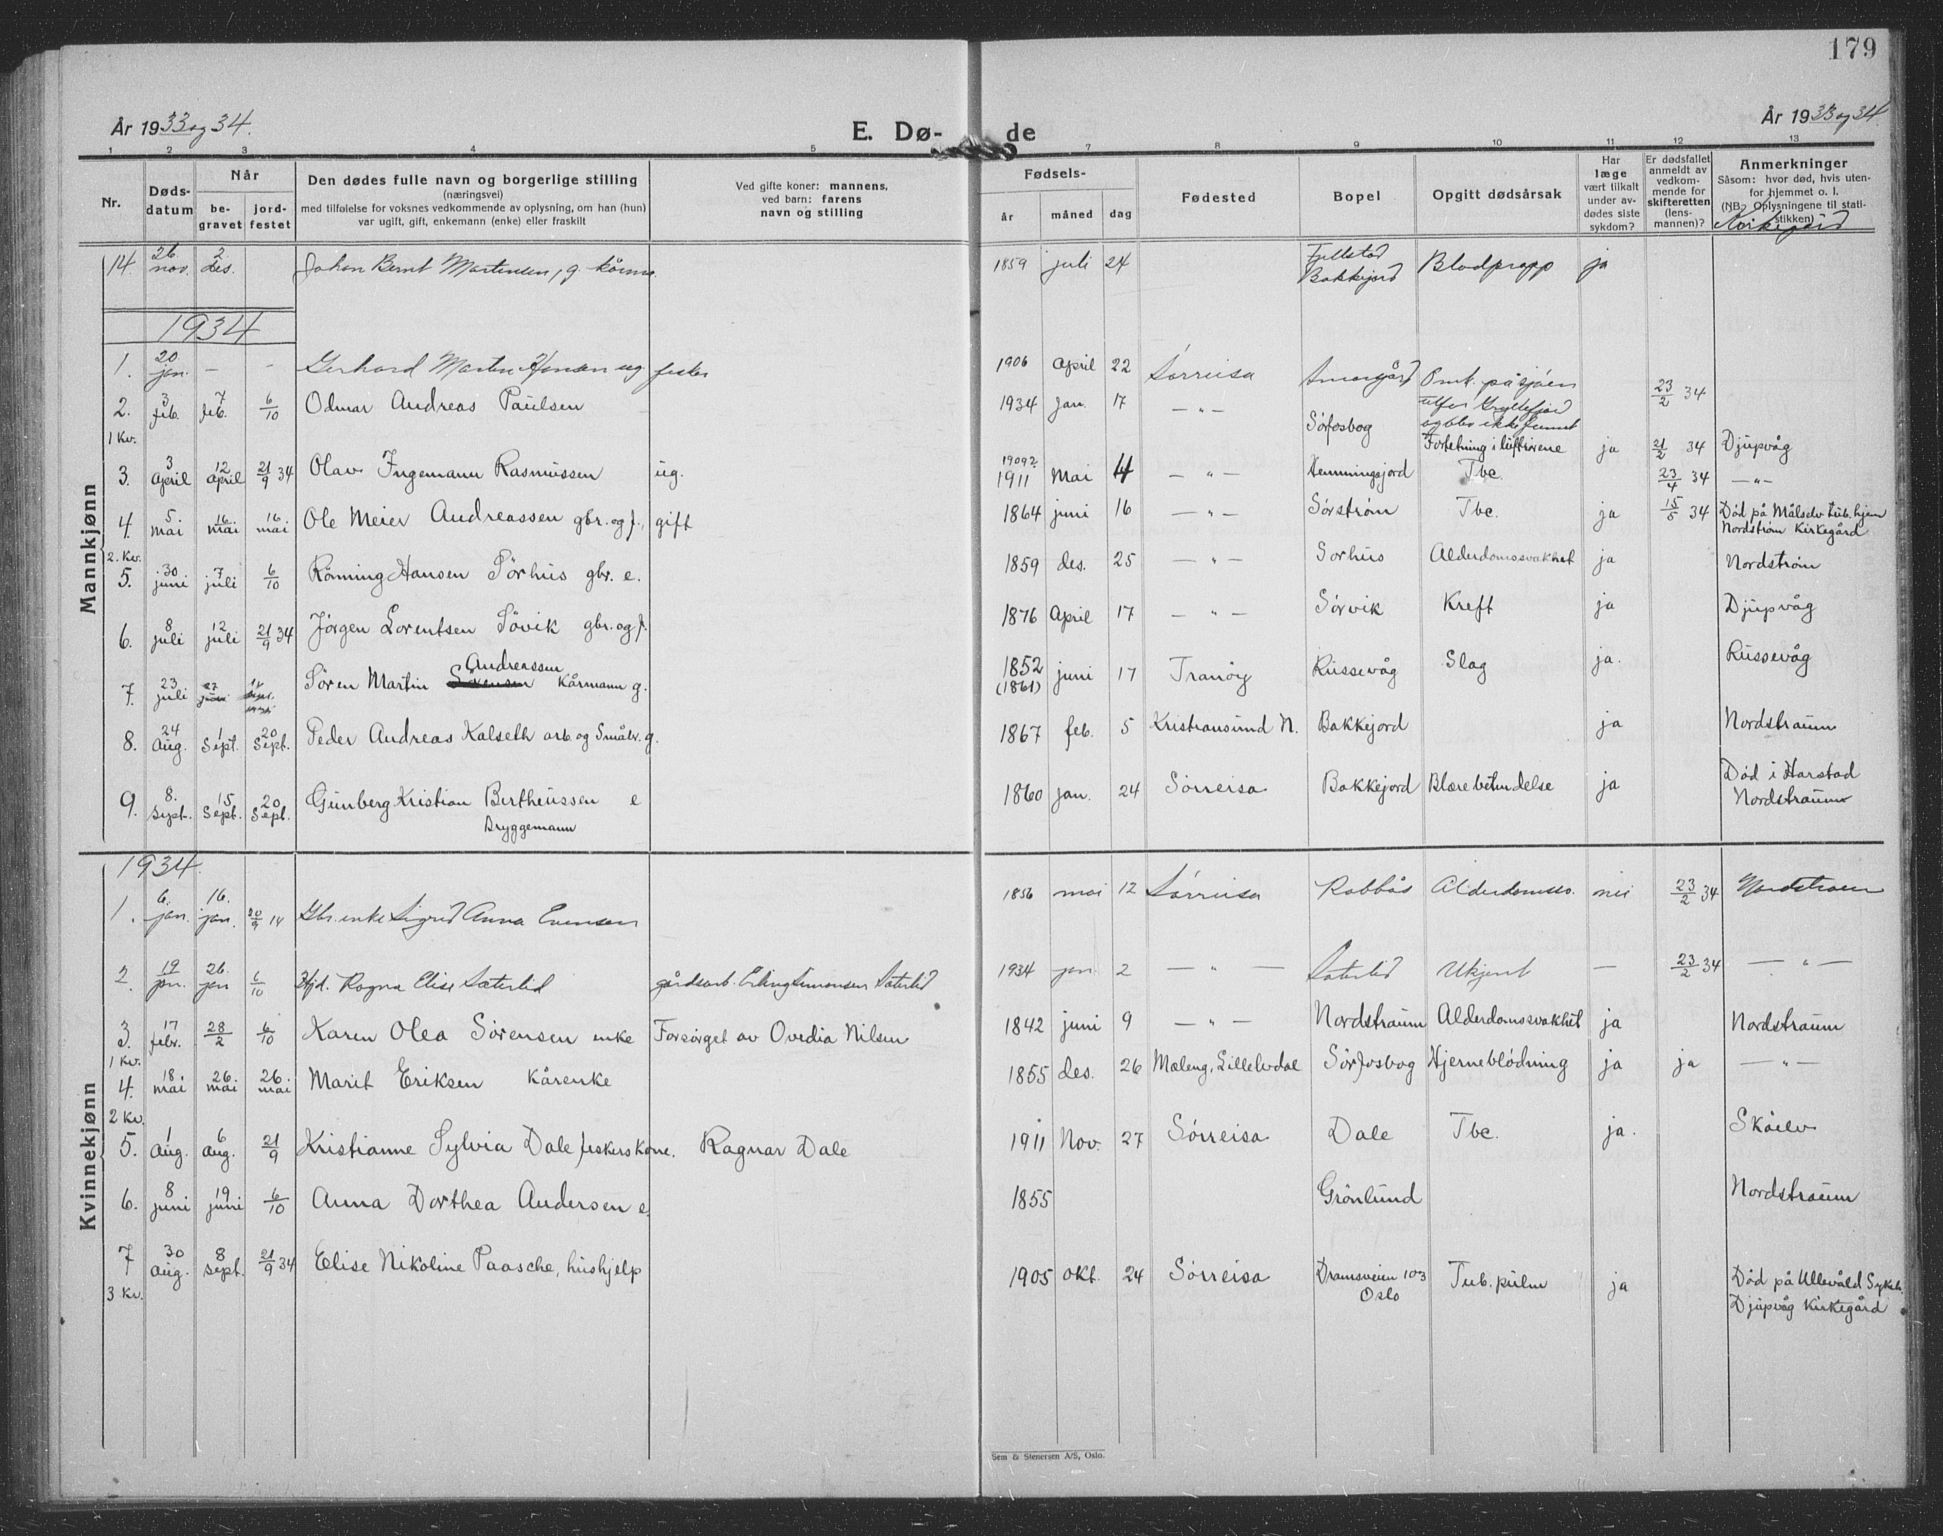 179
År 1933 og 34.
E. Dø- de
År 1933 og 34
1 2 3 4 5 7 8 9 10 11 12 13
Nr.
Dødsdatum
Når
begravet
jordfestet
Den dødes fulle navn og borgerlige stilling
(næringsvei)
med tilføielse for voksnes vedkommende av oplysning, om han (hun)
var ugift, gift, enkemann (enke) eller fraskilt
Ved gifte koner: mannens,
ved barn: farens
navn og stilling
Fødsels-
år måned dag
Fødested
Bopel
Opgitt dødsårsak
Har læge vært tilkalt under avdødes siste sykdom?
Er dødsfallet anmeldt av vedkommende for skifteretten (lensmannen)?
Anmerkninger
Såsom: hvor død, hvis utenfor hjemmet o. l.
(NB. Oplysningene til statistikken)
Kirkegård
Mannkjønn
14. 26 nov. 2 des. Johan Bernt Martinsen, g. kårm. 1859 juli 24 Fjellstad Bakkejord Blodpropp ja
1934
1. 20 jan. — - Gerhard Martin Hansen ug. fisker 1906 April 22 Sørreisa Omk. på sjøen utfor Gryllefjord og blev ikke funnet 23/2 34
2. 3 feb. 7 feb. 6/10 Odmar Andreas Paulsen 1934 Jan. 17 — " — Sørfosbog Fortetning i luftrørene ja 21/2 34 Djupvåg
1 Kv.
3. 3 April 12 April 21/9 34 Olav Ingemann Rasmussen ug. 1909? 1911 Mai 4 — " — Hemmingsjord Tbc. 23/4 34 — " —
4. 5 mai 16 mai 16 mai Ole Meier Andreassen gbr. og f., gift 1864 juni 16 — " — Sørstrøm Tbc. ja 15/5 34 Død på Målselv tub. hjem Nordstrøm Kirkegård
2. Kv.
5. 30 juni 7 juli 6/10 Rönning Hansen Sørhus gbr. e. 1859 des. 25 — " — Sorhus Alderdomssvakhet ja Nordstrøm
6. 8 juli 12 juli 21/9 34 Jørgen Lorentsen Søvik gbr. og f. 1876 April 17 — " — Sørvik Kreft ja Djupvåg
7. 23 juli 27 Søren Martin Sørensen Andreassen Kårmann g. 1852 (1861) juni 17 Tranöy Russevåg Slag ja. Russevåg
8. 24 Aug. 1 Sept. 20 Sept. Peder Andreas Kalseth arb. og Småbr. g. 1867 feb. 5 Kristiansund N. Bakkejord ja Nordstraum
9. 8. Sept. 15 Sept. 20 Sept. Gunberg Kristian Bertheussen e Bryggemann 1860 jan. 24 Sørreisa Bakkejord Blærebetendelse ja Død i Harstad Nordstraum
Kvinnekjønn
1934.
1. 6. jan. 16. jan. Gbr. enke Sigrid Anna Evensen 1856 mai 12 Sørreisa Rabbås Alderdomssv. nei 23/2 34 Nordstraum
2. 19 jan. 26. jan 6/10 Hjd. Ragna Elise Sæterlid gårdsarb. Erling Simonsen Sæterlid 1934 jan. 2 — " — Sæterlid Ukjent — 23/2 34 — " —
3. 17 febr. 28/2 6/10 Karen Olea Sørensen enke Forsørget av Ovedia Nilsen 1842 juni 9 — " — Nordstraum Alderdomssvakhet ja Nordstraum
1 Kv.
4. 18 mai 26 mai 26 mai Marit Eriksen Kårenke 1855 des. 26 Mæleng, Lilleelvdal Sörfosbog Hjerneblödning ja ja — " —
2 Kv.
5. 1 Aug. 6 Aug. 21/9 Kristianne Sylvia Dale fiskerskone. Ragnar Dale 1911 Nov. 27 Sørreisa Dale Tbc. ja. Skøelv
6. 8 juni 19 juni 6/10 Anna Dorthea Andersen e. 1855 Grönlund Nordstraum
7 30 Aug. 8 Sept. 21/9 34 Elise Nikoline Paasche, hushjelp 1905 okt. 24 Sørreisa Dramsveien 103 Oslo Tub. pulm ja Død på Ullevåld Sykeh. Djupvåg Kirkegård
3 Kv.
Sem & Stenersen A/S, Oslo.